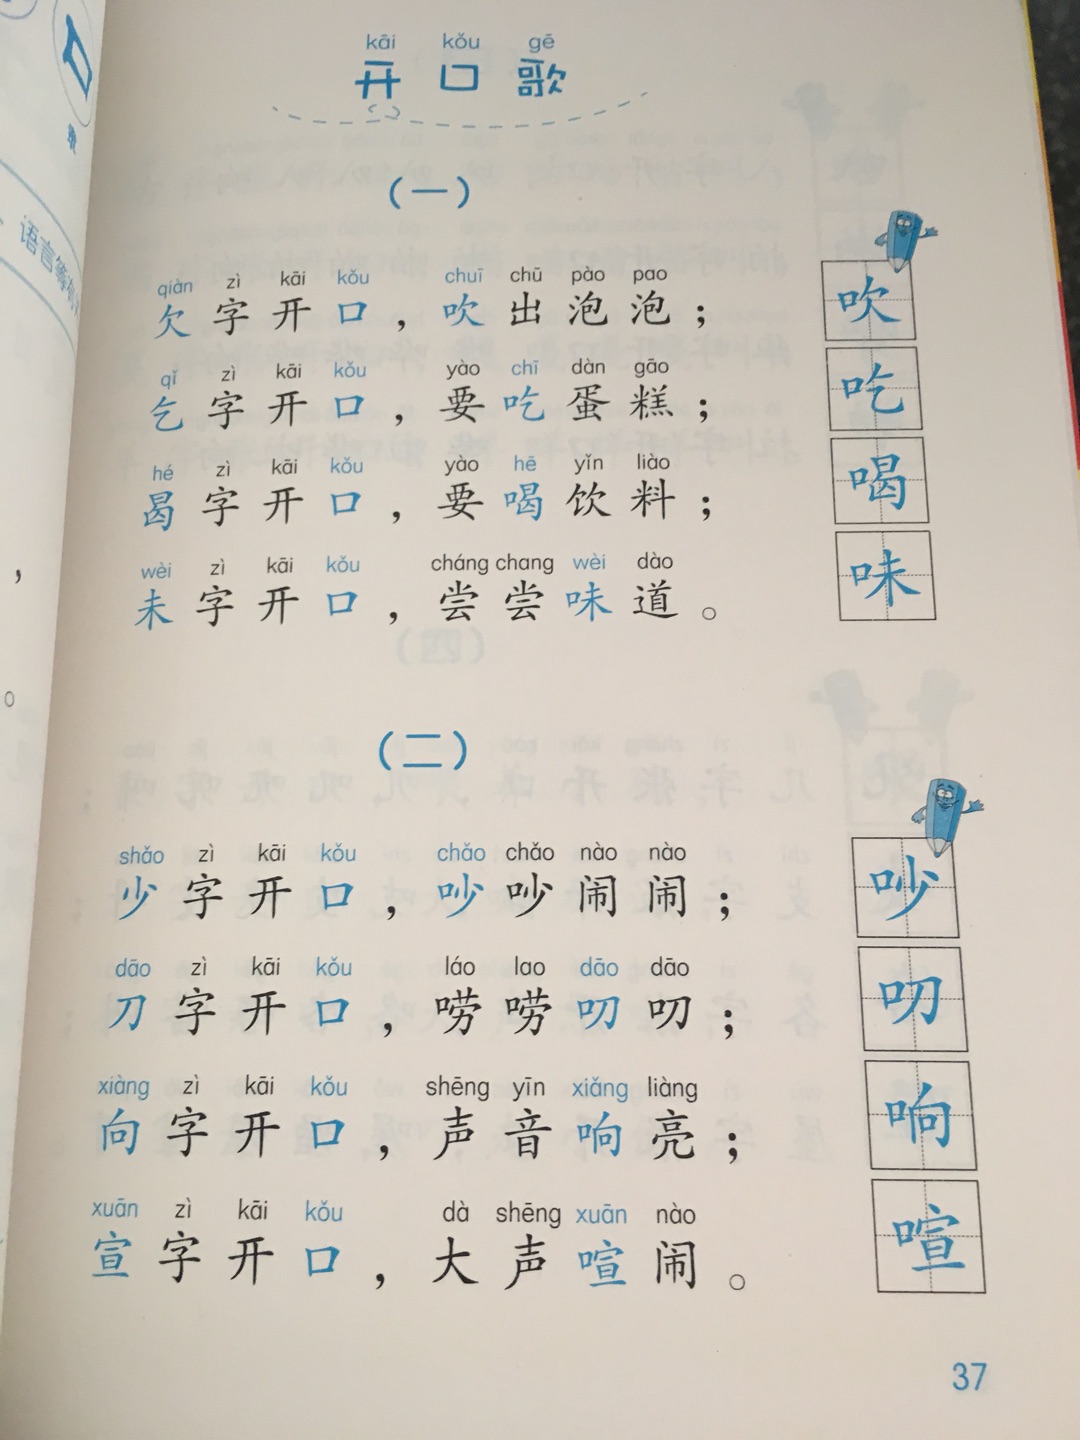 kāi kǒu gē
开口歌
（一）
qiàn zì kāi kǒu chuī chū pào pao
欠字开口，吹出泡泡；
吹
qǐ zì kāi kǒu yào chī dàn gāo
乞字开口，要吃蛋糕；
吃
hé zì kāi kǒu yào hē yǐn liào
曷字开口，要喝饮料；
喝
wèi zì kāi kǒu cháng chang wèi dào
未字开口，尝尝味道。
味
（二）
shǎo zì kāi kǒu chǎo chǎo nào nào
少字开口，吵吵闹闹；
吵
dāo zì kāi kǒu láo lao dāo dāo
刀字开口，唠唠叨叨；
叨
xiàng zì kāi kǒu shēng yīn xiǎng liàng
向字开口，声音响亮；
响
xuān zì kāi kǒu dà shēng xuān nào
宣字开口，大声喧闹。
喧
37